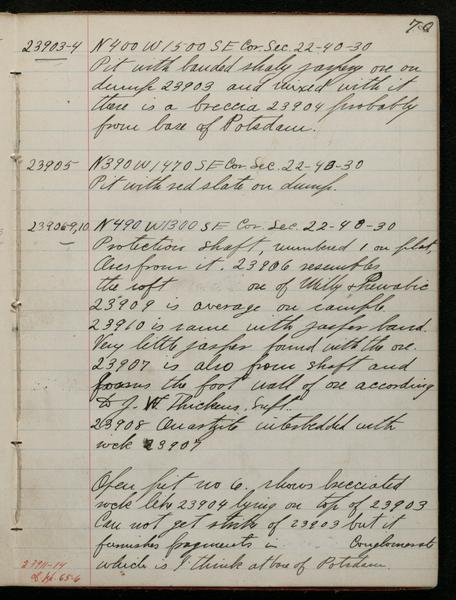 70
23903-4 N400 W1500 SE Cor. Sec. 22-40-30
Pit with banded shaly jaspery ore on
dump 23903 and mixed with it
there is a breccia 23904 probably
from base of Potsdam.
23905 N390 W1470 SE Cor. Sec. 22-40-30
Pit with red slate on dump.
23906-9,10 N490 W1300 SE Cor. Sec. 22-40-30
Protection shaft, numbered 1 on plat,
Ores from it. 23906 resembles
the soft ore of Milly & Pewabic
23909 is average ore sample
23910 is same with jasper band.
Very little jasper found with the ore.
23907 is also from shaft and
forms the foot wall of ore according
to J. W. Thickens, Supt.
23908 Quartzite interbedded with
rock 23907
Open pit no 6. shows brecciated
rock like 23904 lying on top of 23903
Can not get strike of 23903 but it
furnishes fragments in Conglomerate
which is I think at base of Potsdam
23911-14
of pp. 65-6